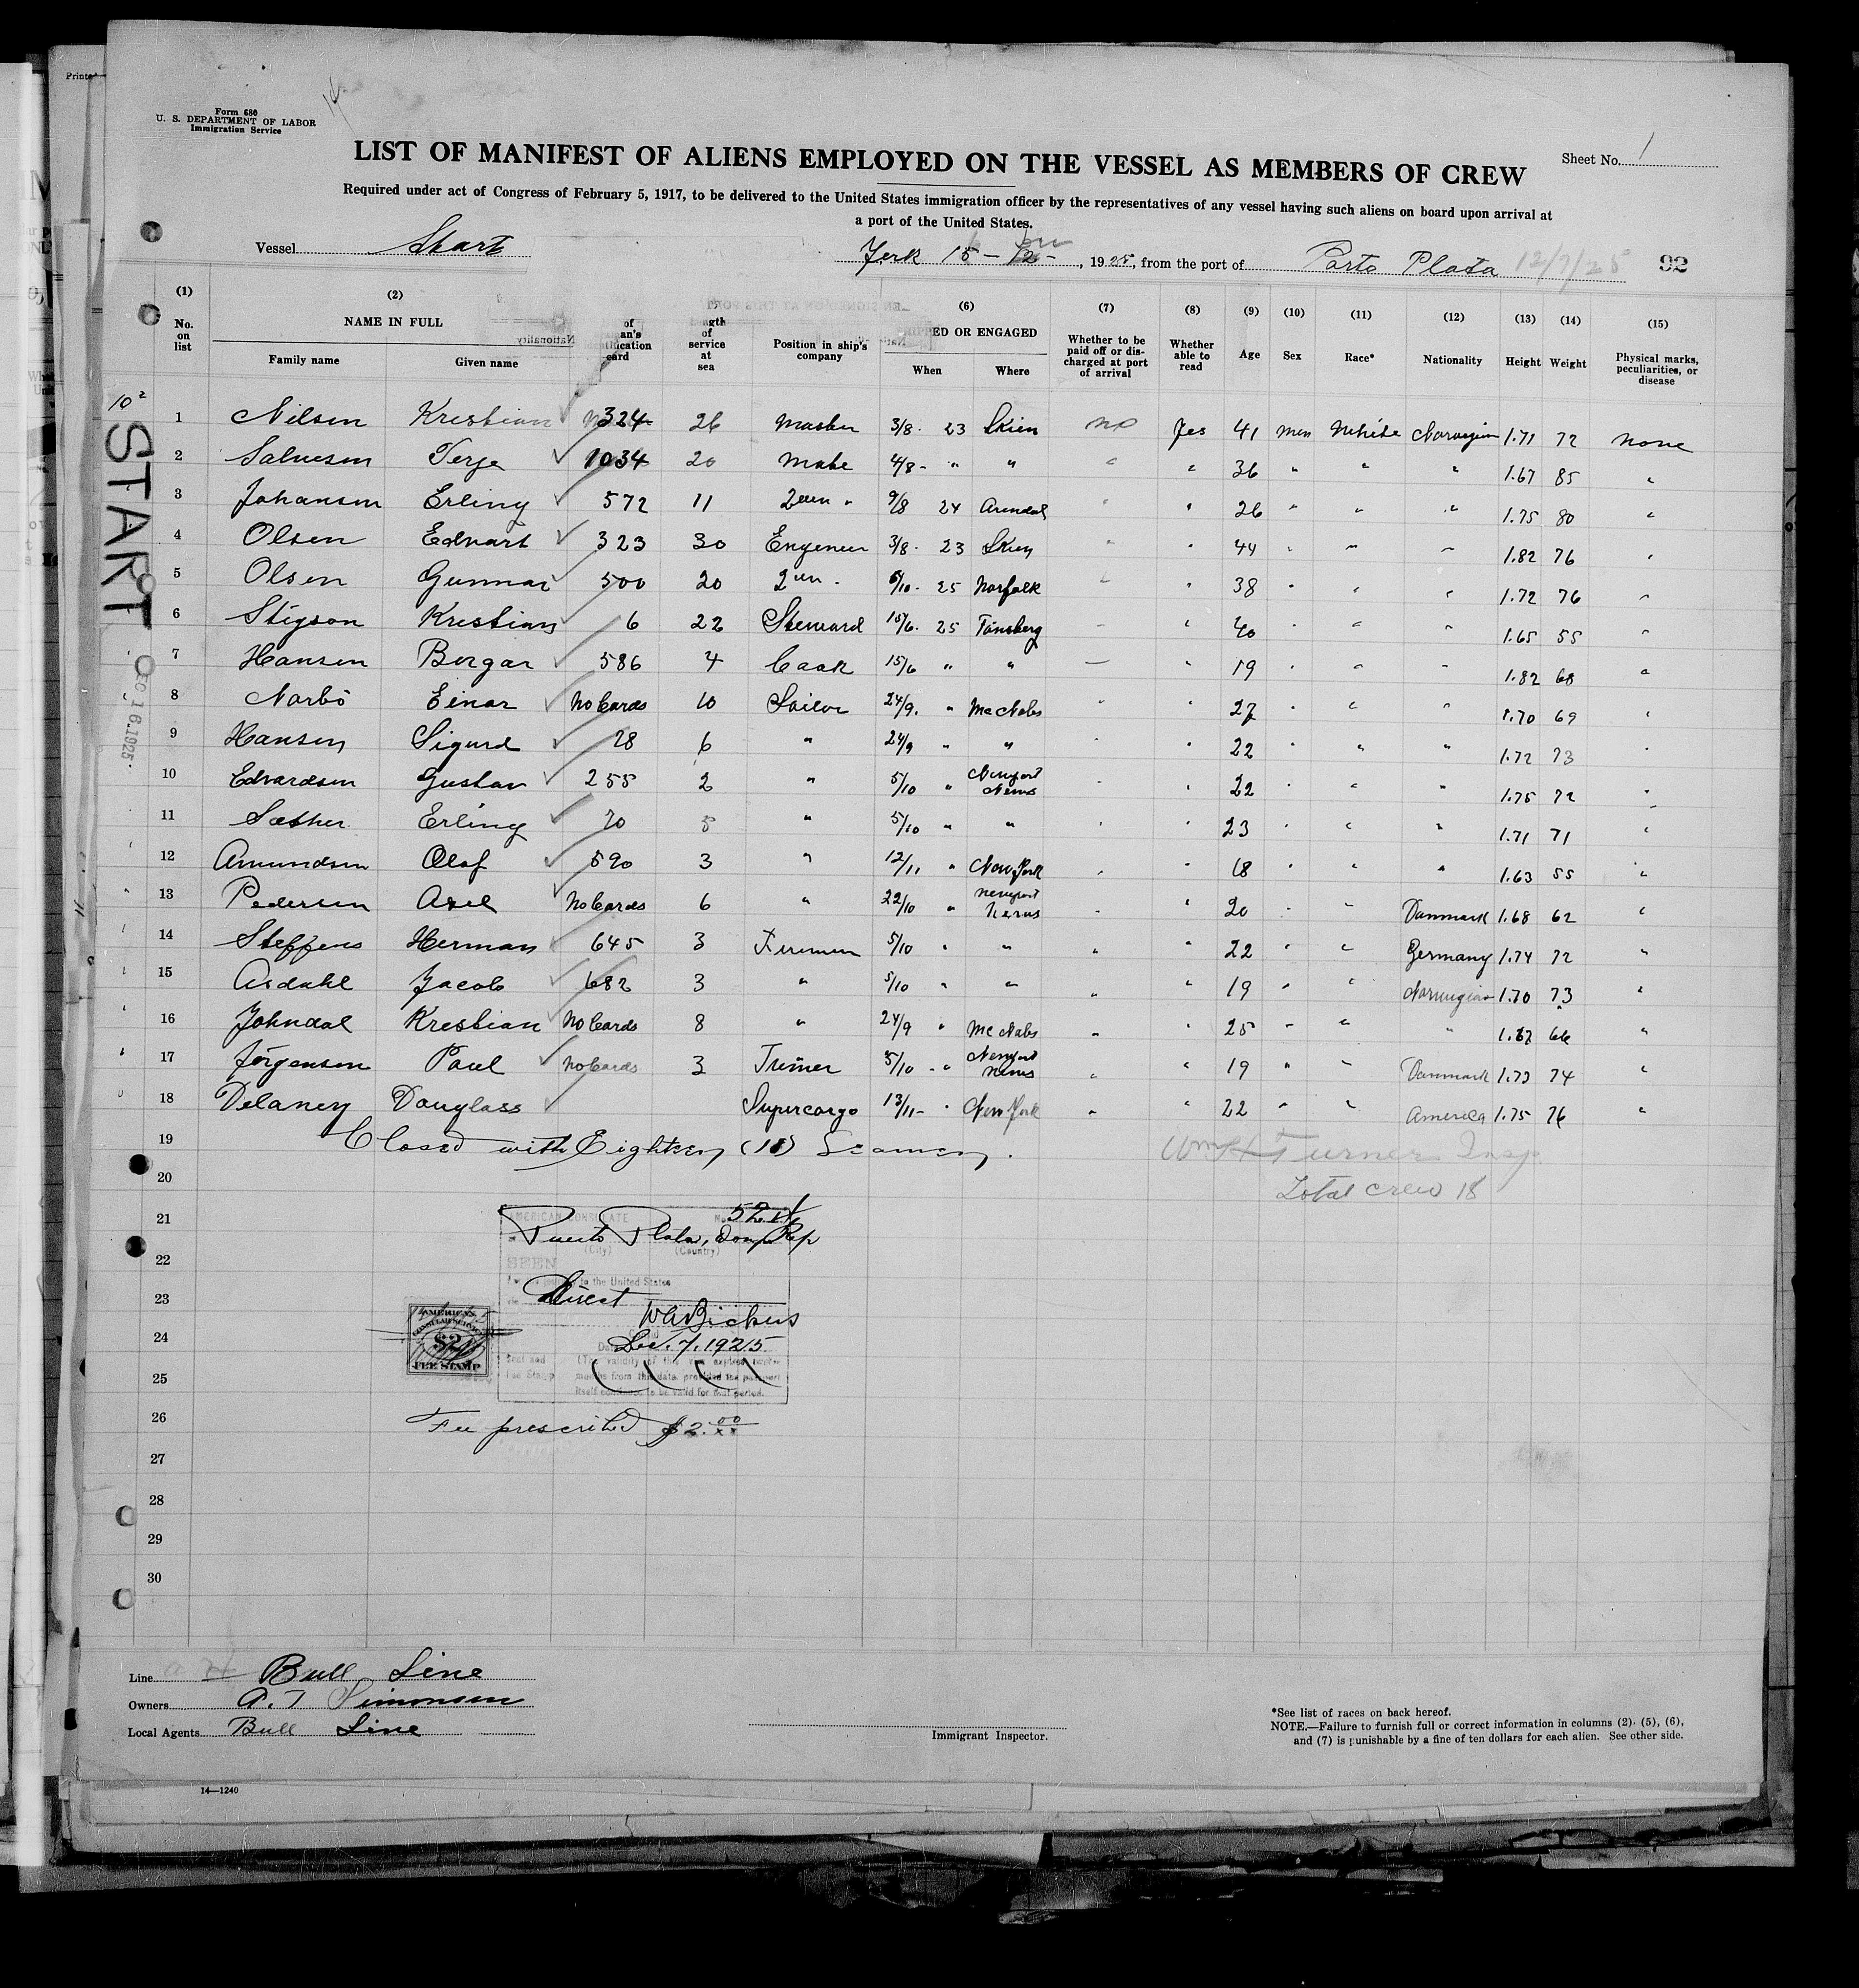 Form 680
U. S. DEPARTMENT OF LABOR
Immigration Service
LIST OF MANIFEST OF ALIENS EMPLOYED ON THE VESSEL AS MEMBERS OF CREW
Sheet No. 1
Required under act of Congress of February 5, 1917, to be delivered to the United States immigration officer by the representatives of any vessel having such aliens on board upon arrival at
a port of the United States.
Vessel Start York 15 - 12 -, 1925, from the port of Porto Plata 12/7/25 92
(1) (2) (6) (7) (8) (9) (10) (11) (12) (13) (14) (15)
No. on list NAME IN FULL Family name Given name service at sea Position in ship's company ED OR ENGAGED When Where Whether to be paid off or discharged at port of arrival Whether able to read Age Sex Race* Nationality Height Weight Physical marks, peculiarities, or disease
10²
START
1 Nilsen Kristian 324 26 Master 3/8 - 23 Skien no Yes 41 men White Norwegian 1.71 72 none
2 Salvesen Terje 1034 20 Mate 4/8 - " " " " 36 " " " 1.67 85 "
3 Johansen Erling 572 11 2 " 9/8 24 Arendal " " 26 " " " 1.75 80 "
4 Olsen Edvart 323 30 Engeneer 3/8 - 23 Skien " " 44 " " " 1.82 76 "
5 Olsen Gunnar 500 20 2 " /10 - 25 Norfolk " " 38 " " " 1.72 76 "
6 Stigson Kristian 6 22 Steward 15/6 - 25 Tönsberg " " 40 " " " 1.65 55 "
7 Hansen Borgar 586 4 Cook 15/6 " " — " 19 " " " 1.82 68 "
8 Narbö Einar No Cards 10 Sailor 24/9 " Mc Nabs " " 27 " " " 1.70 69 "
9 Hansen Sigurd 28 6 " 24/9 " " " " 22 " " " 1.72 73 "
10 Edvardsen Gustav 255 2 " 5/10 " Newport News " " 22 " " " 1.75 72 "
11 Sæther Erling 70 5 " 5/10 " " " " 23 " " " 1.71 71 "
12 Amundsen Olaf 590 3 " 12/11 " New York " " 18 " " " 1.63 55 "
13 Pedersen Axel No Cards 6 " 22/10 " Newport News " " 20 " " Danmark 1.68 62 "
14 Steffens Herman 645 3 Firemen 5/10 " " " " 22 " " Germany 1.74 72 "
15 Asdahl Jacob 682 3 " 5/10 " " " " 19 " " Norwegian 1.70 73 "
16 Johndal Kristian No Cards 8 " 24/9 " Mc Nabs " " 25 " " " 1.67 66 "
17 Jörgensen Paul No Cards 3 Trimer 5/10 " Newport News " " 19 " " Danmark 1.73 74 "
18 Delaney Douglass Supercargo 13/11 - " New York " " 22 " " America 1.75 76 "
19 Closed with Eighteen (18) Seamen.
Wm H Turner Insp
Total crew 18
20
21
22
23
24
25
26
27
28
29
30
DEC 16 1925
AMERICAN CONSULATE No.
Puerto Plata, Dom Rep
(City) (Country)
SEEN
to the United States
Direct
Dec. 7, 1925
Seal and Fee Stamp
(The validity of this
months from this date provided the passport
itself continues to be valid for that period.
AMERICAN
CONSULAR SERVICE
$2
FEE STAMP
Fee prescribed $2.00
Line Bull Line
Owners A. T Simonsen
Local Agents Bull Line
Immigrant Inspector.
*See list of races on back hereof.
NOTE.—Failure to furnish full or correct information in columns (2), (5), (6),
and (7) is punishable by a fine of ten dollars for each alien. See other side.
14—1240